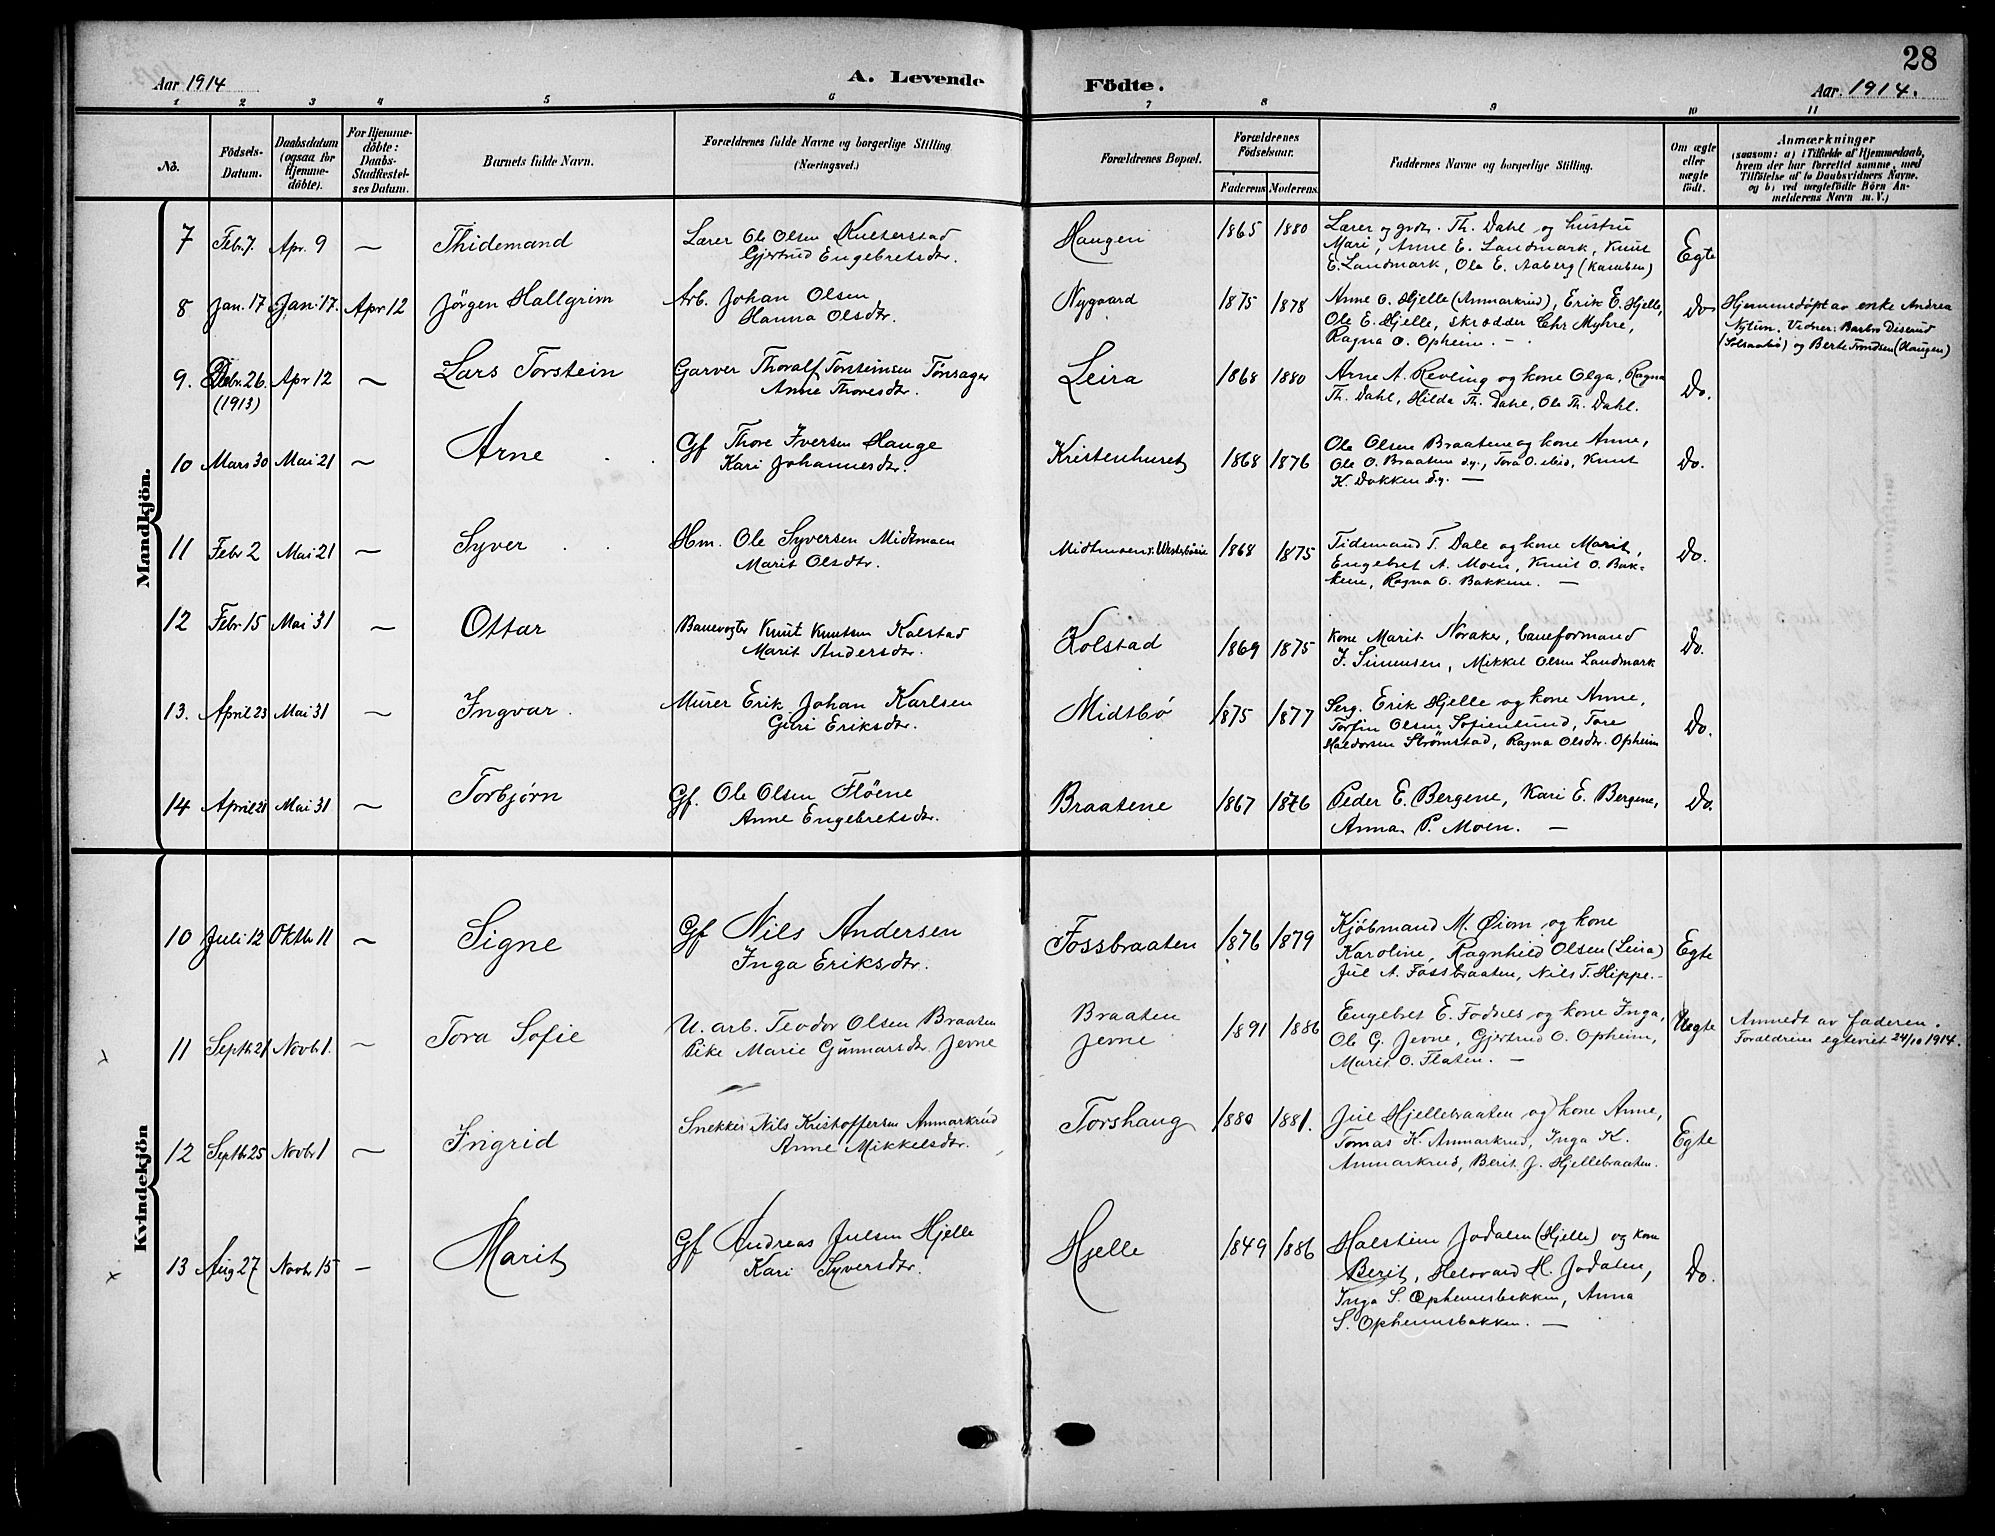 28
Aar 1914
A. Levende
Födte.
Aar 1914.
1 2 3 4 5 6 7 8 9 10 11
No.
Födsels-
Datum.
Daabsdatum
(ogsaa for
Hjemme-
döbte).
For Hjemme-
döbte:
Daabs-
Stadfæstel-
ses Datum.
Barnets fulde Navn.
Forældrenes fulde Navne og borgerlige Stilling
(Næringsvei.)
Forældrenes Bopæl.
Forældrenes
Födselsaar.
Faderens Moderens
Faddernes Navne og borgerlige Stilling.
Om ægte
eller
uægte
födt.
Anmærkninger
(saasom: a) i Tilfælde af Hjemmedaab,
hvem der har forrettet samme, med
Tilföielse af to Daabsvidners Navne.
og b) ved uægtefödte Börn An-
melderens Navn m. V.)
Mandkjön.
7 Febr. 7. Apr. 9 — Thidemand
Lærer Ole Olsen
Gjertrud Engebretsdtr.
Haugen 1865 1880
Lærer og Th. Dahl og hustru
Mari, Anne E. Landmark, Knut
E. Landmark, Ole E. Aaberg
Egte
8 Jan. 17 Jan. 17. Apr 12 Jörgen Hallgrim
Arb. Johan Olsen
Hanna Olsdtr.
Nygaard 1875 1878
Anne O. Hjelle (Anmarkrud), Erik E. Hjelle,
Ole E. Hjelle, skrædder Chr Myhre,
Ragna O. Opheim. —
Do
Hjemmedøpt av enke Andrea
Barbro Diserud
og Berte Trondsen (Haugen)
9. Debr. 26. Apr 12 — Lars Torstein
(1913)
Garver Thoralf Torsteinsen Tönsager
Anne Thoresdtr.
Leira 1868 1880
Arne A. Revling og kone Olga, Ragna
Th. Dahl, Hilda Th. Dahl, Ole Th. Dahl.
Do.
10 Mars 30 Mai 21 — Arne
Gf Thore Iversen Hauge
Kari Johannesdtr.
Kristenhuset 1868 1876
Ole Olsen Braatene og kone Anne,
Ole O. Braaten d.y., Tora O. ibid, Knut
K. Dokken d.y. —
Do.
11 Febr 2 Mai 21 — Syver
Hm. Ole Syversen Midtmoen
Marit Olsdtr.
Midtmoen 1868 1875
Tidemand T. Dale og kone Marit,
Engebret A. Moen, Knut O. Bak-
ken, Ragna O. Bakken. —
Do.
12 Febr. 15 Mai 31 — Ottar
Banevogter Knut Knutsen Kolstad
Marit Andersdtr.
Kolstad 1869 1875
Kone Marit Noraker, baneformand
J. Simensen, Mikkel Olsen Landmark
Do.
13. April 23 Mai 31 — Ingvar.
Murer Erik Johan Karlsen
Guri Eriksdtr.
Midtbø 1875 1877
Serg. Erik Hjelle og kone Anne,
Torfin Olsen Sofienlund, Tore
Haldorsen Strömstad, Ragna Olsdtr. Opheim
Do.
14 April 21 Mai 31 — Torbjørn
Gf. Ole Olsen Flöene
Anne Engebretsdtr.
Braatene 1867 1876
Peder E. Bergene, Kari E. Bergene,
Anna P. Moen. —
Do.
Kvindekjön
10 Juli 12 Oktbr 11 — Signe
Gf Nils Andersen
Inga Eriksdtr.
Fossbraaten 1876 1879
Kjöbmand M. Øiom og kone
Karoline, Ragnhild Olsen (Leira)
Jul A. Fossbraaten, Nils T. Hippe. —
Egte
11 Septbr 21 Novbr 1. — Tora Sofie
U. arb. Teodor Olsen Braaten
Pike Marie Gunnarsdtr. Jevne
Braaten
Jevne
1891 1886
Engebret E. Fodnes og kone Inga,
Ole G. Jevne, Gjertrud O. Opheim,
Marit O. Flaten. —
Uegte
Anmeldt av faderen.
Forældrene egteviet 24/10 1914.
12 Septbr 25 Novbr 1 — Ingrid
Snekker Nils Kristoffersen Anmarkrud
Anne Mikkelsdtr.
Torshaug 1880 1881.
Jul Hjellebraaten og kone Anne,
Tomas K. Anmarkrud, Inga K.
Anmarkrud, Berit J. Hjellebraaten.
Egte
13 Aug 27 Novbr 15 — Marit
Gf Andreas Julsen Hjelle
Kari Syversdtr.
Hjelle 1849 1886
Halstein Jodalen (Hjelle) og kone
Berit, H. Jodalen,
Inga S. Ophemsbakken, Anna
S. Ophemsbakken. —
Do.